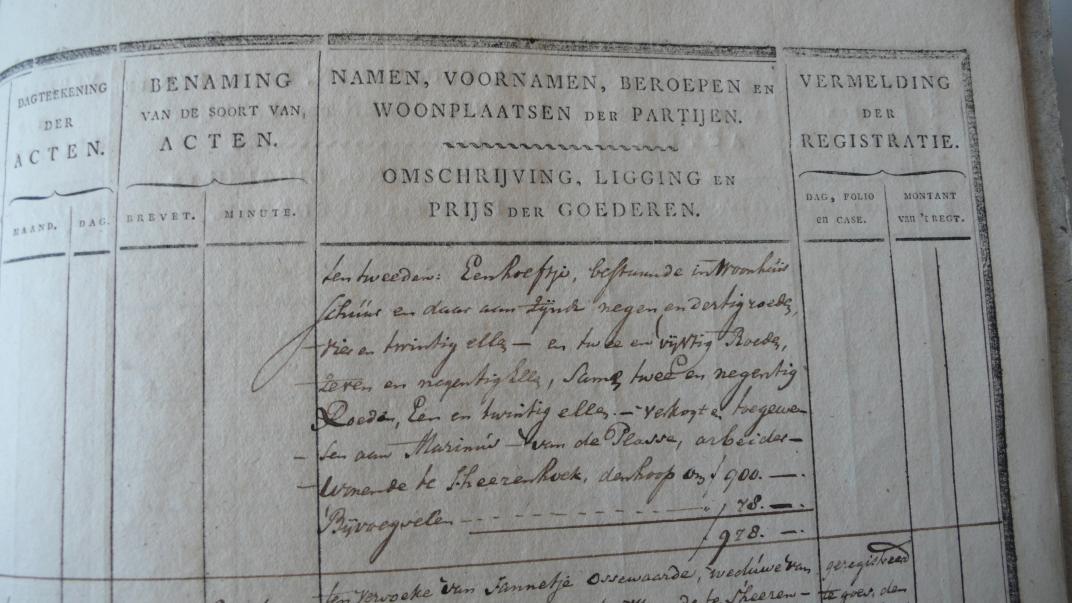 DAGTEEKENING
DER
ACTEN.
MAAND. DAG.
BENAMING
VAN DE SOORT VAN
ACTEN.
BREVET. MINUTE.
NAMEN, VOORNAMEN, BEROEPEN EN
WOONPLAATSEN DER PARTIJEN.
OMSCHRIJVING, LIGGING EN
PRIJS DER GOEDEREN.
VERMELDING
DER
REGISTRATIE.
DAG, FOLIO
en CASE.
MONTANT
van 't REGT.
ten tweeden: Een hoefje, bestaande in Woonhuis
schuur en daar aan zijnde negen en dertig roede,
vier en twintig elle – en twee en vijftig Roede,
zeven en negentig Elle, Same twee en negentig
Roede, Een en twintig elle. – verkogt en toegewe-
sen aan Marinus van de Plasse, arbeider
wonende te 'sHeerenhoek, de koop om f 900. –
Bijvoegselen " 78. –
f 978. –
ten versoeke van Jannetje Ossewaarde, weduwe van
te 'sHeeren-
geregistreerd
te goes, den